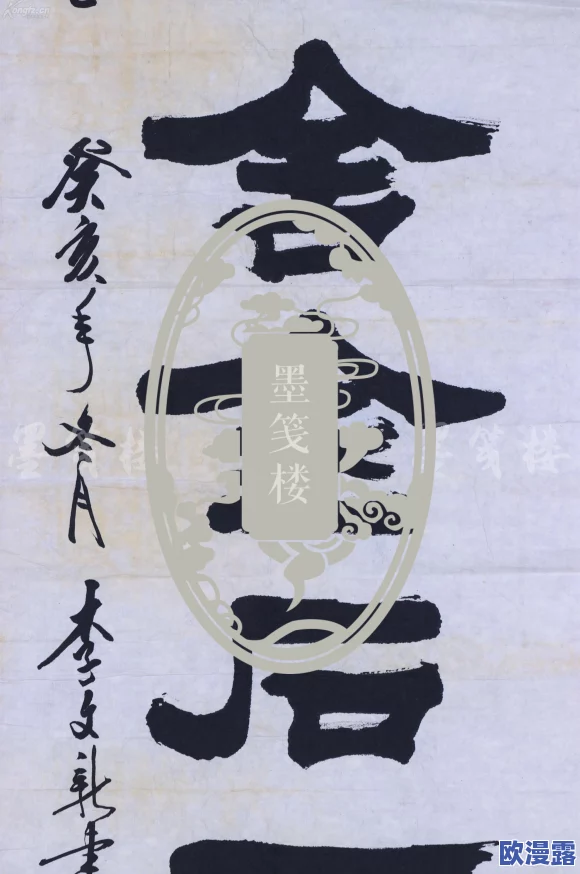 含金石
癸亥年冬月 李文新書
墨笺楼
墨笺楼
墨笺楼
欧漫露